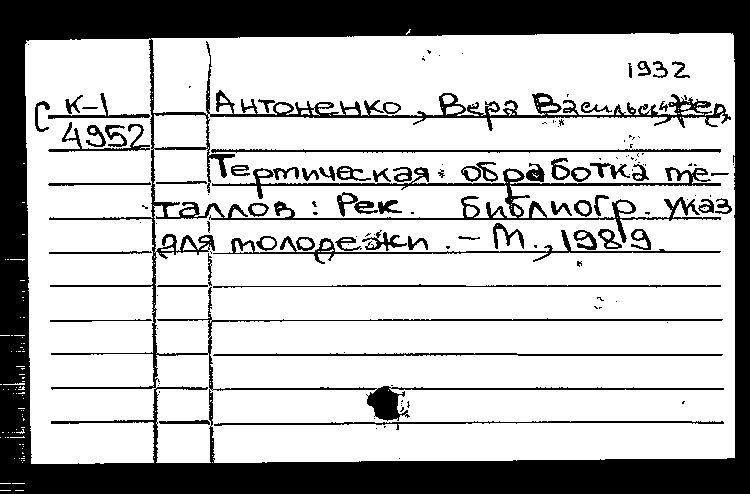 1932
С К-1
4952
Антоненко, Вера Васильевна, ред.
Термическая обработка ме-
таллов : Рек. библиогр. указ
для молодежи. – М., 1989.